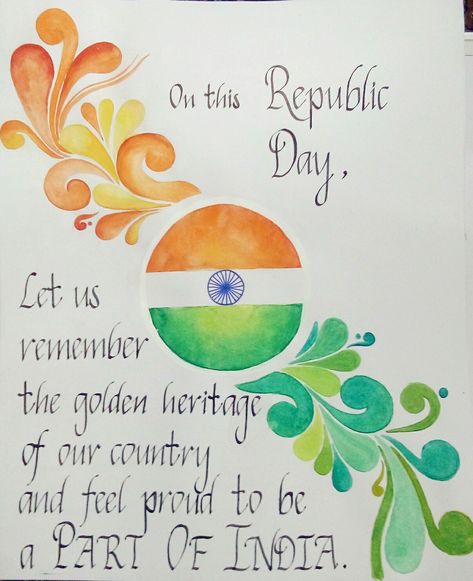 On this Republic
Day,
Let us
remember
the golden heritage
of our country
and feel proud to be
a PART OF INDIA.